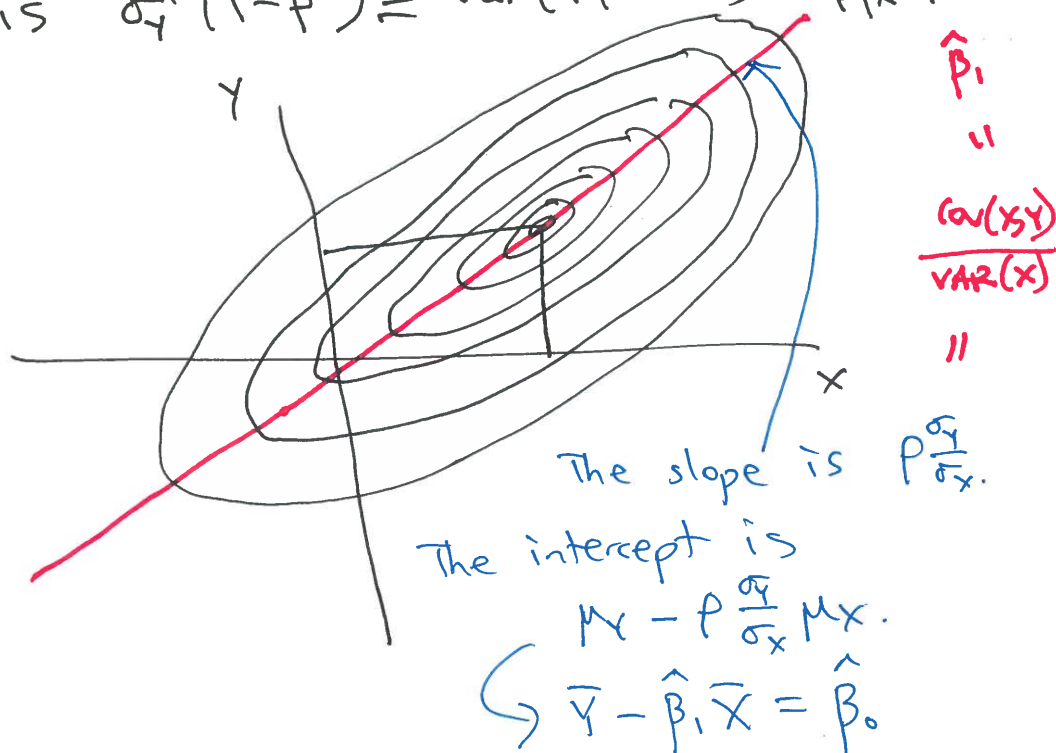 is σ_Y² (1-ρ²) = Var(Y
Y
β̂₁
"
Cov(X,Y)
VAR(X)
"
X
The slope is ρ σ_Y/σ_X.
The intercept is
μ_Y - ρ σ_Y/σ_X μ_X.
Ȳ - β̂₁ X̄ = β̂₀